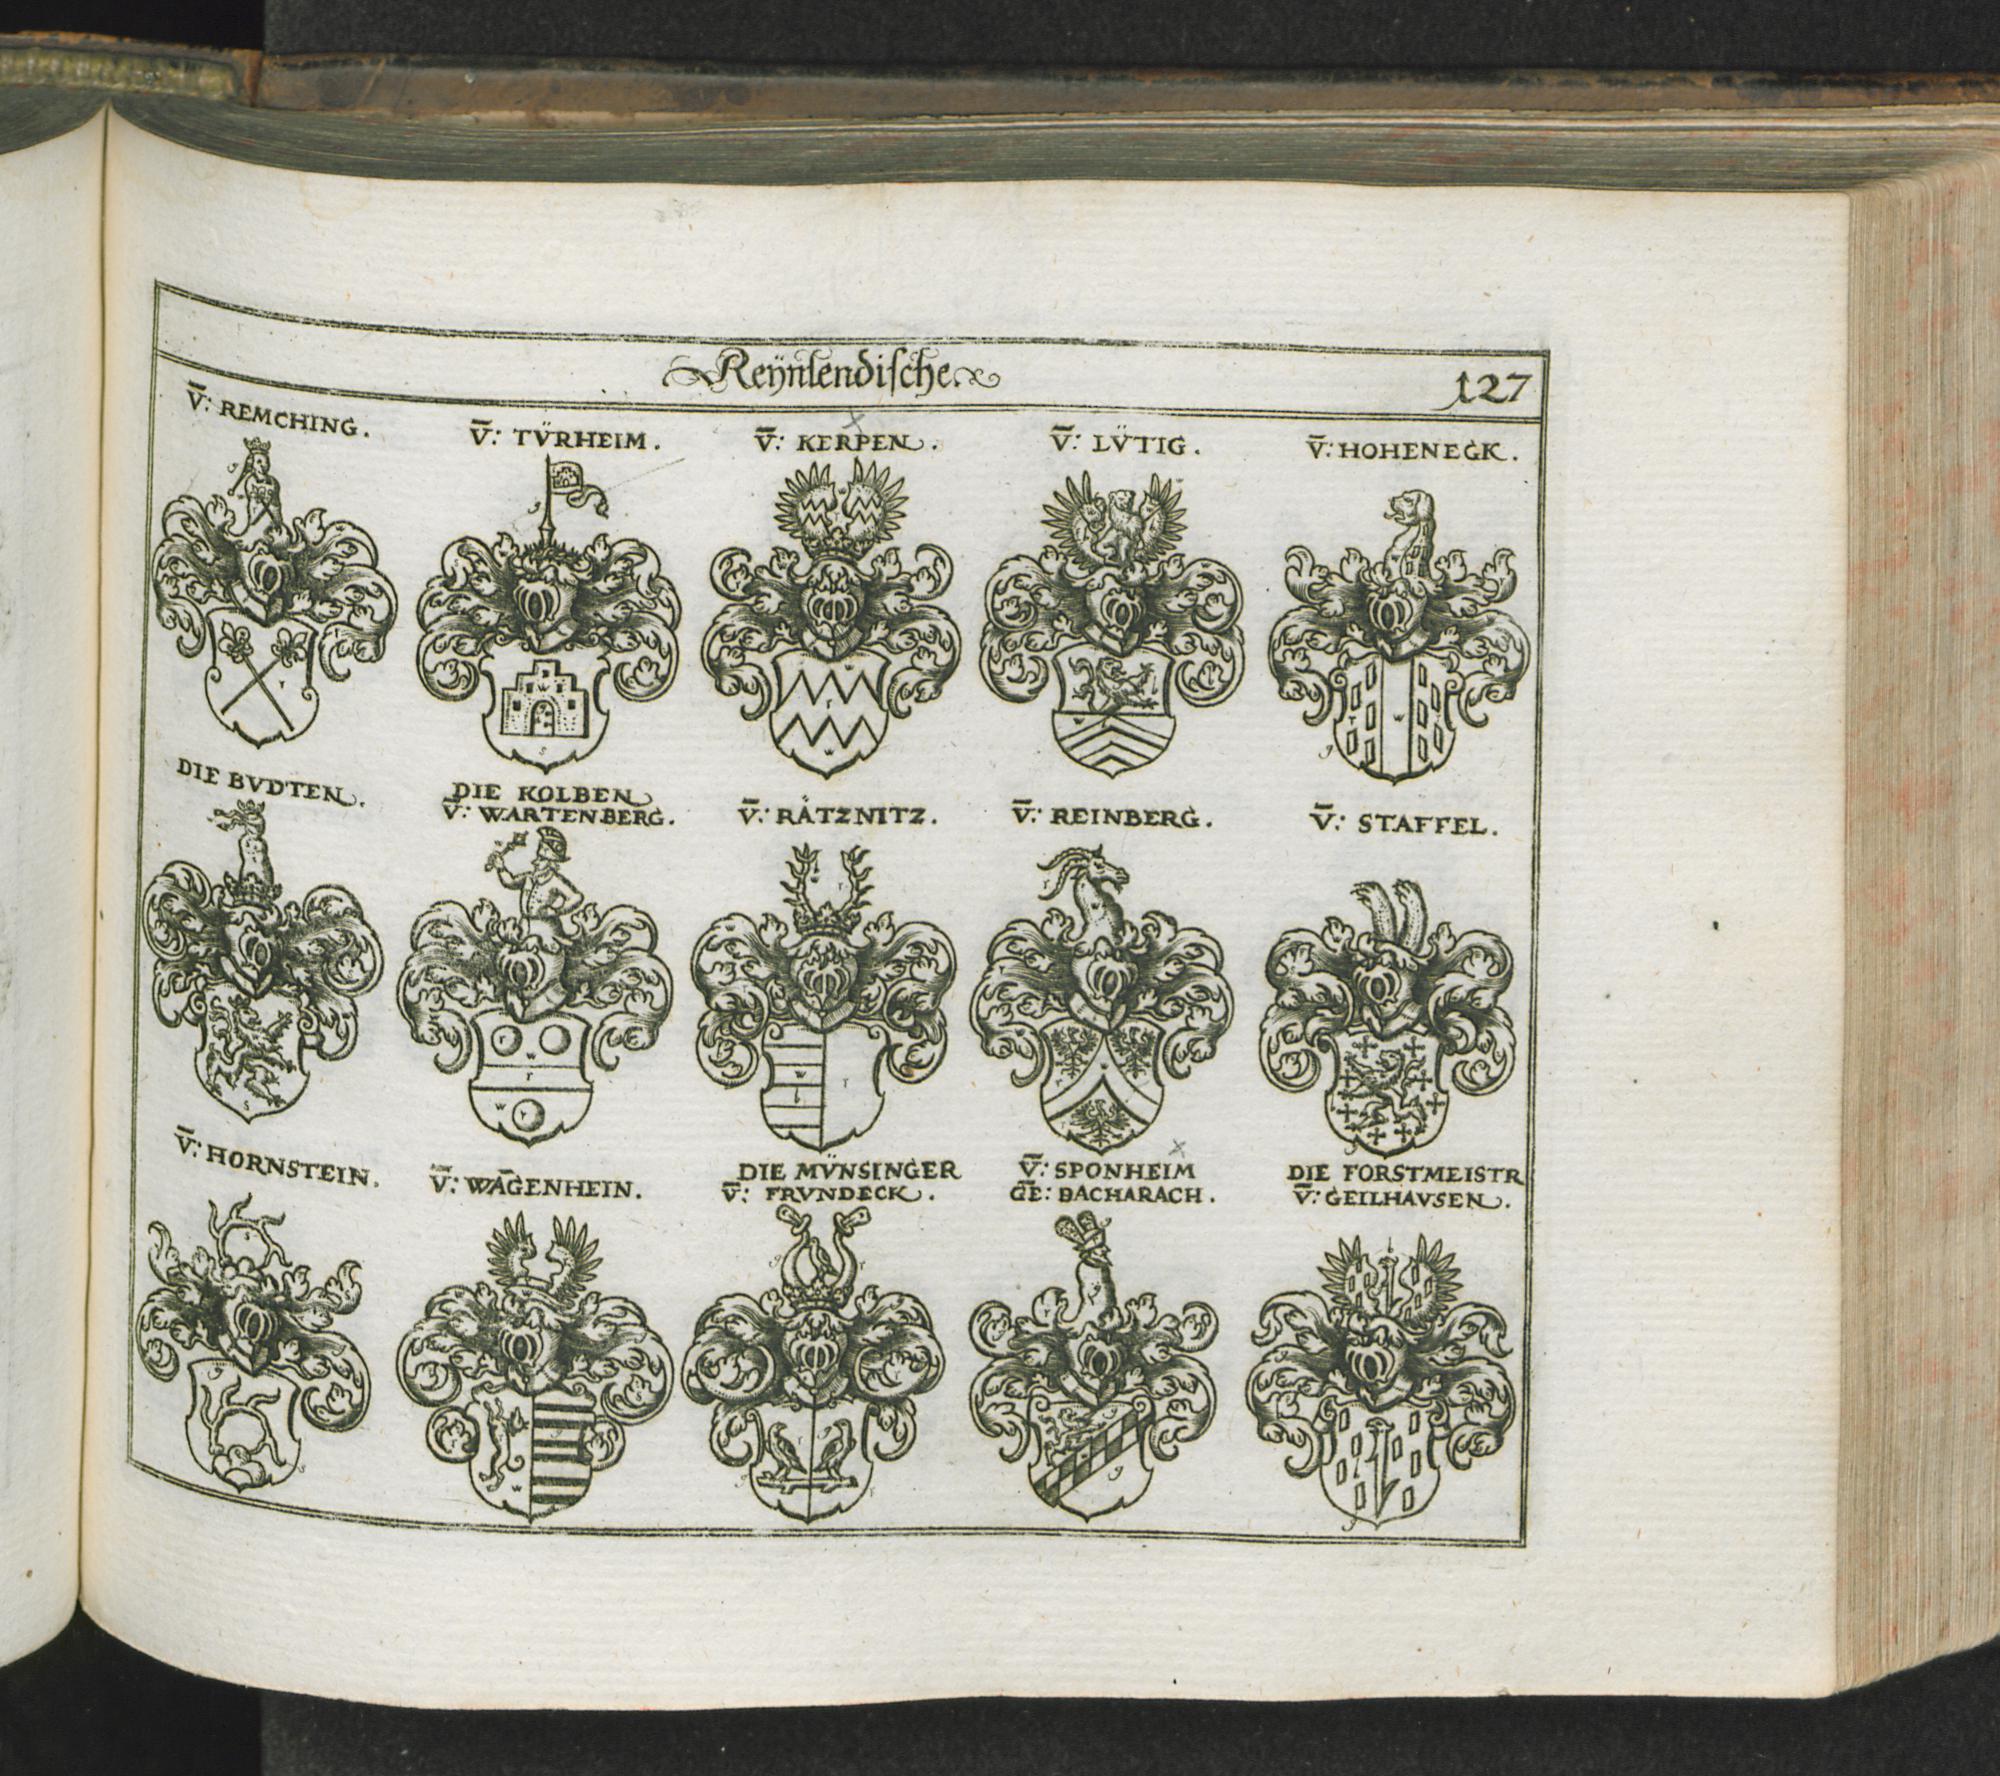 Reÿnlendische
127
V̄: REMCHING.
V̄: TV̈RHEIM.
V̄: KERPEN.
V̄: LV̈TIG.
V̄: HOHENEGK.
DIE BVDTEN.
DIE KOLBEN
V̄: WARTENBERG.
V̄: RÄTZNITZ.
V̄: REINBERG.
V̄: STAFFEL.
V̄: HORNSTEIN.
V̄: WĀGENHEIN.
DIE MV̈NSINGER
V̄: FRVNDECK.
V̄: SPONHEIM
GE: BACHARACH.
DIE FORSTMEISTR
V̄: GEILHAVSEN.